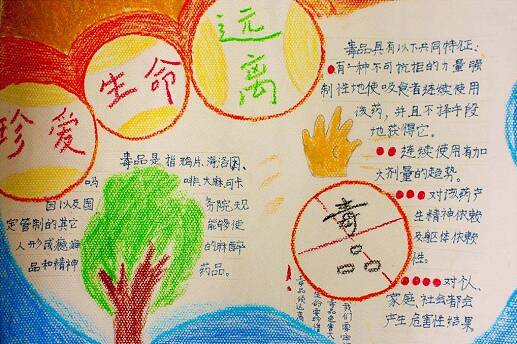 珍爱
生命
远离
毒品具有以下共同特征:
有一种不可抗拒的力量强
制性地使吸食者继续使用
该药,并且不择手段
地获得它。
连续使用有加
大剂量的趋势。
对该药产
生精神依赖
及躯体依赖
性。
对个人、
家庭、社会都会
产生危害性结果
毒品是指鸦片、海洛因、
吗 啡大麻可卡
因以及国 务院规
定管制的其它 能够使
人形成瘾癖 的麻醉
品和精神 药品。
毒品